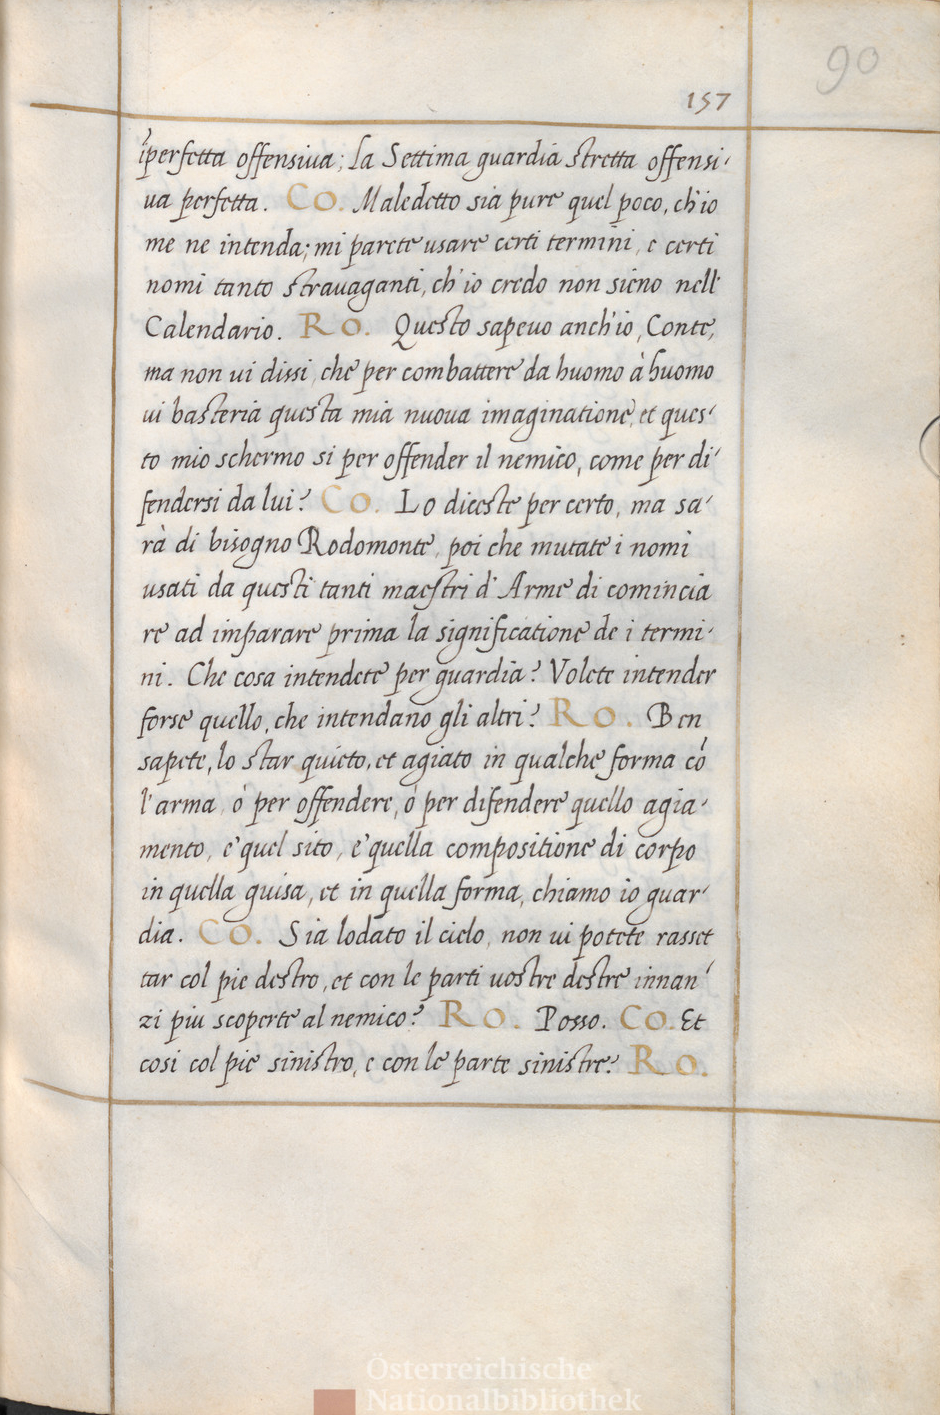 90
157
ĩperfetta offensiua; La Settima guardia stretta offensi-
ua perfetta. CO. Maledetto sia pure quel poco, ch'io
me ne intenda; mi parete usare certi termiñi, e certi
nomi tanto strauaganti, ch'io credo non sieno nell'
Calendario. RO. Questo sapeuo anch'io, Conte,
ma non ui dissi, che per combattere da huomo à huomo
ui basteria questa mia nuoua imaginatione, et ques-
to mio schermo si per offender il nemico, come per di-
fendersi da lui? CO. Lo diceste per certo, ma sa-
rà di bisogno Rodomonte, poi che mutate i nomi
usati da questi tanti maestri d'Arme di comincia
re ad imparare prima la significatione de i termi-
ni. Che cosa intendete per guardia? Volete intender
forse quello, che intendano gli altri? RO. Ben
sapete, lo star quieto, et agiato in qualche forma cõ
l'arma, ò per offendere, ò per difendere quello agia-
mento, e' quel sito, e' quella compositione di corpo
in quella guisa, et in quella forma, chiamo io guar-
dia. CO. Sia lodato il cielo, non ui potete rasset
tar col pie destro, et con le parti uostre destre innan-
zi piu scoperte al nemico? RO. Posso. CO. Et
cosi col pie sinistro, e con le parte sinistre? RO.
Österreichische
Nationalbibliothek